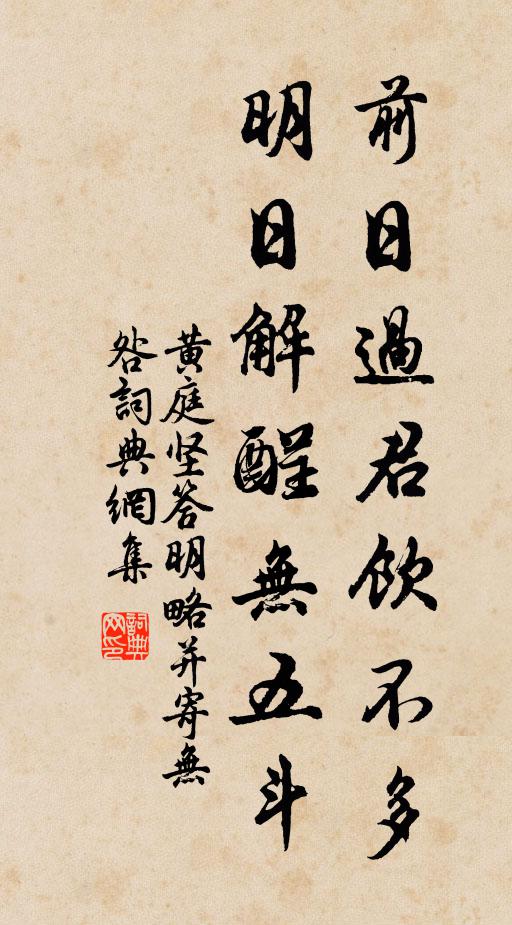 前日過君飲不多
明日解酲無五斗
黄庭坚答明略并寄無
咎詞典網集
詞典网印